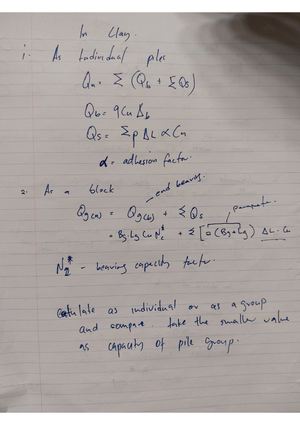 In Clay.
1. As Individual piles
Qu = Σ (Qb + ΣQs)
Qb = 9Cu Ab
Qs = Σp ΔL α Cu
α = adhesion factor.
2. As a block
end bearing.
perimeter.
Qg(u) = Qg(b) + ΣQs
= Bg·Lg Cu Nc* + Σ[2(Bg+Lg) ΔL·Cu
- bearing capacity factor.
Calculate as individual or as a group
and compare. take the smaller value
as capacity of pile group.